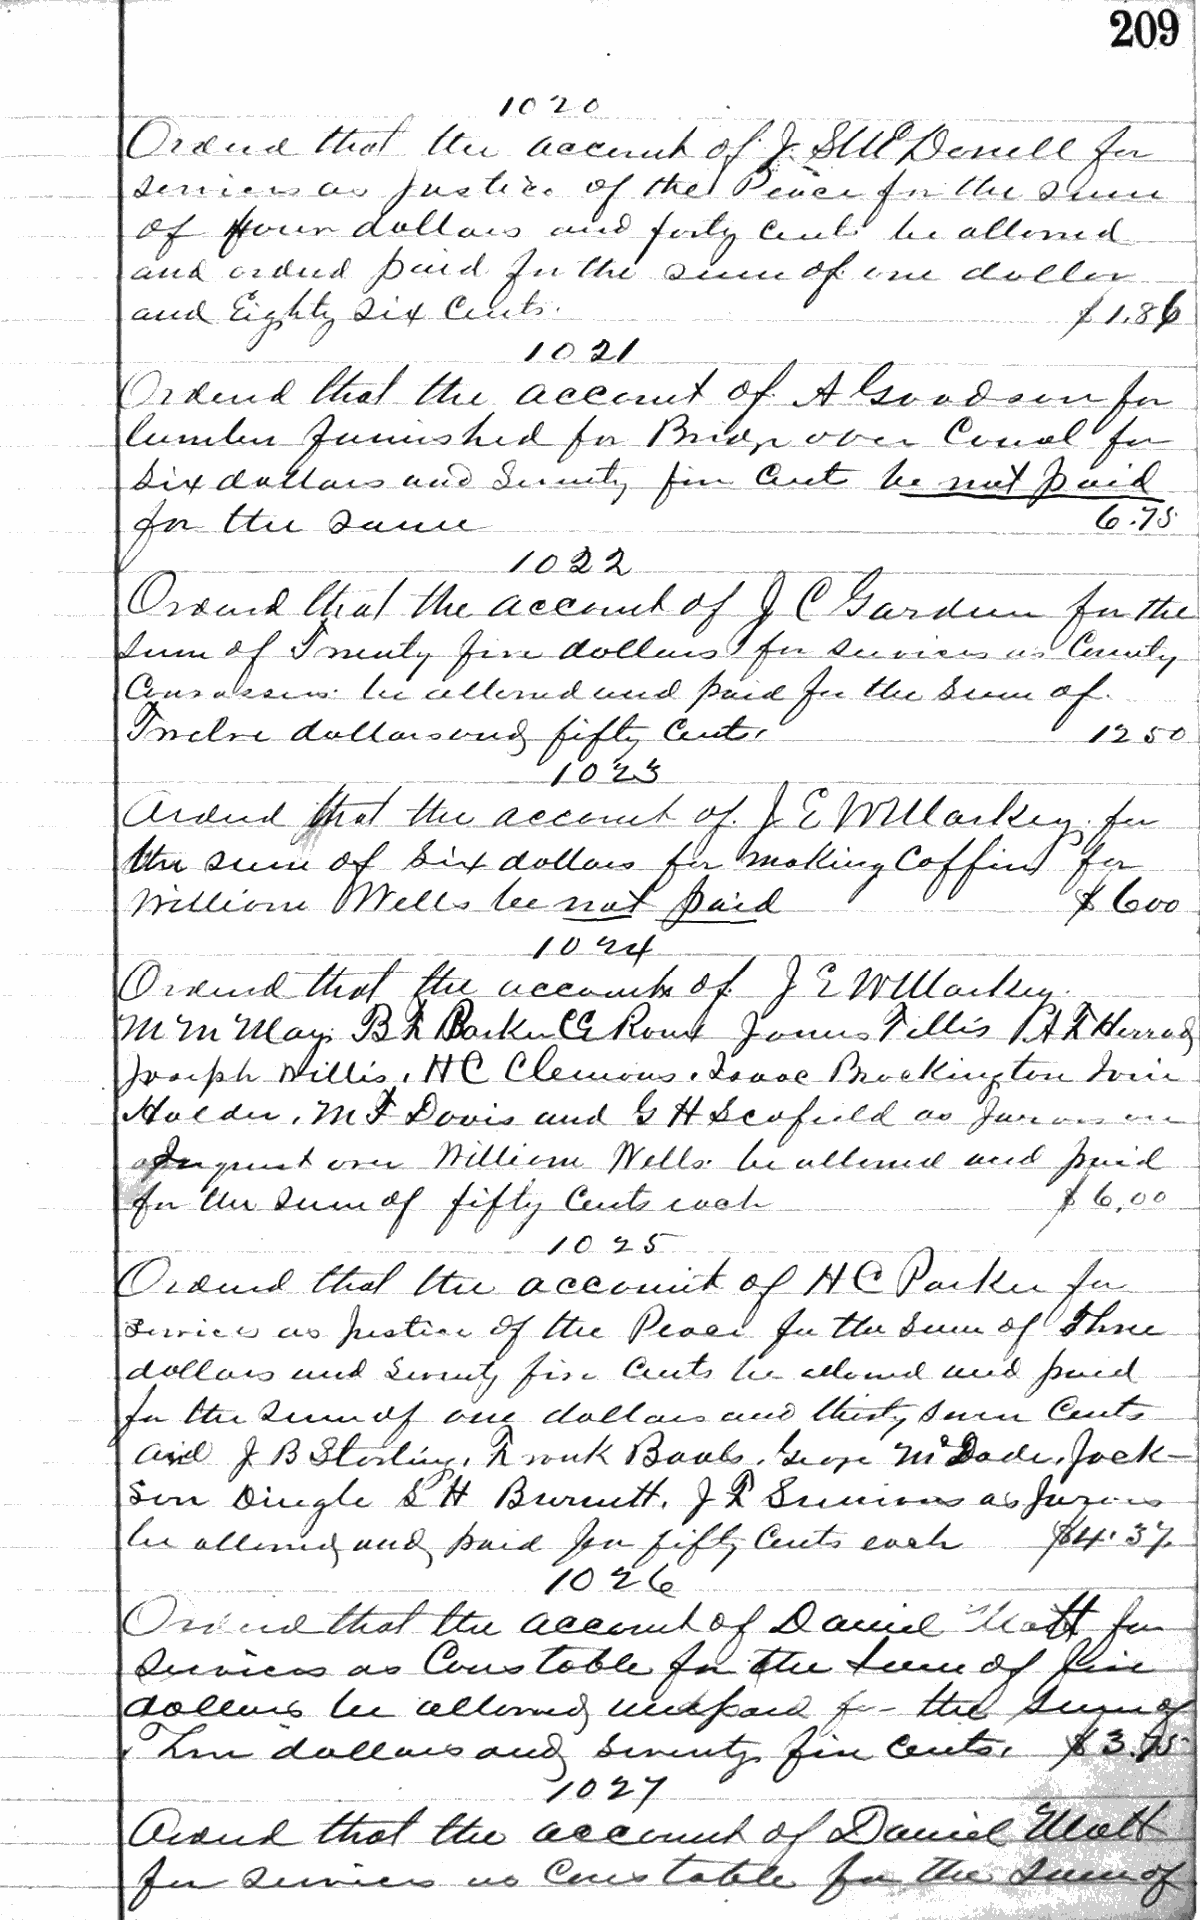 209
1020
Ordered that the account of J. S McDonell for
services as Justice of the Peace for the sum
of four dollars and forty cents be allowed
and ordered paid for the sum of one dollar
and Eighty six Cents. $1.86
1021
Ordered that the account of A Goodson for
lumber furnished for Bridge over Canal for
six dollars and Seventy five Cents be not paid
for the same 6.75
1022
Ordered that the account of J C Gardner for the
sum of Twenty five dollars for services as County
be allowed and paid for the Sum of
Twelve dollars and fifty Cents. 12 50
1023
Ordered that the account of J. E W Markey for
the sum of Six dollars for making Coffin for
William Wells be not paid $600
1024
Ordered that the accounts of J E W Markey.
M M May. B F Barker C E Rowe James Tillis A F Herrod
Joseph Willis, H C Clemons. Isaac Brockington
Holder, M F Davis and G H Scofield as Jurors on
Inquest over William Wells be allowed and paid
for the sum of fifty Cents each $6,00
1025
Ordered that the account of H C Parker for
services as Justice of the Peace for the Sum of Three
dollars and Seventy five Cents be allowed and paid
for the sum of one dollars and thirty seven Cents
and J B Sterling, Frank Bouls. George McDade. Jack-
son Dingle S H Burnett. J F Simmons as Jurors
be allowed and paid for fifty Cents each $4.37
1026
Ordered that the account of Daniel Mott for
Services as Constable for the sum of five
dollars be allowed and paid for the sum of
Three dollars and Seventy five Cents. $3.75
1027
Ordered that the account of Daniel Mott
for services as Constable for the sum of